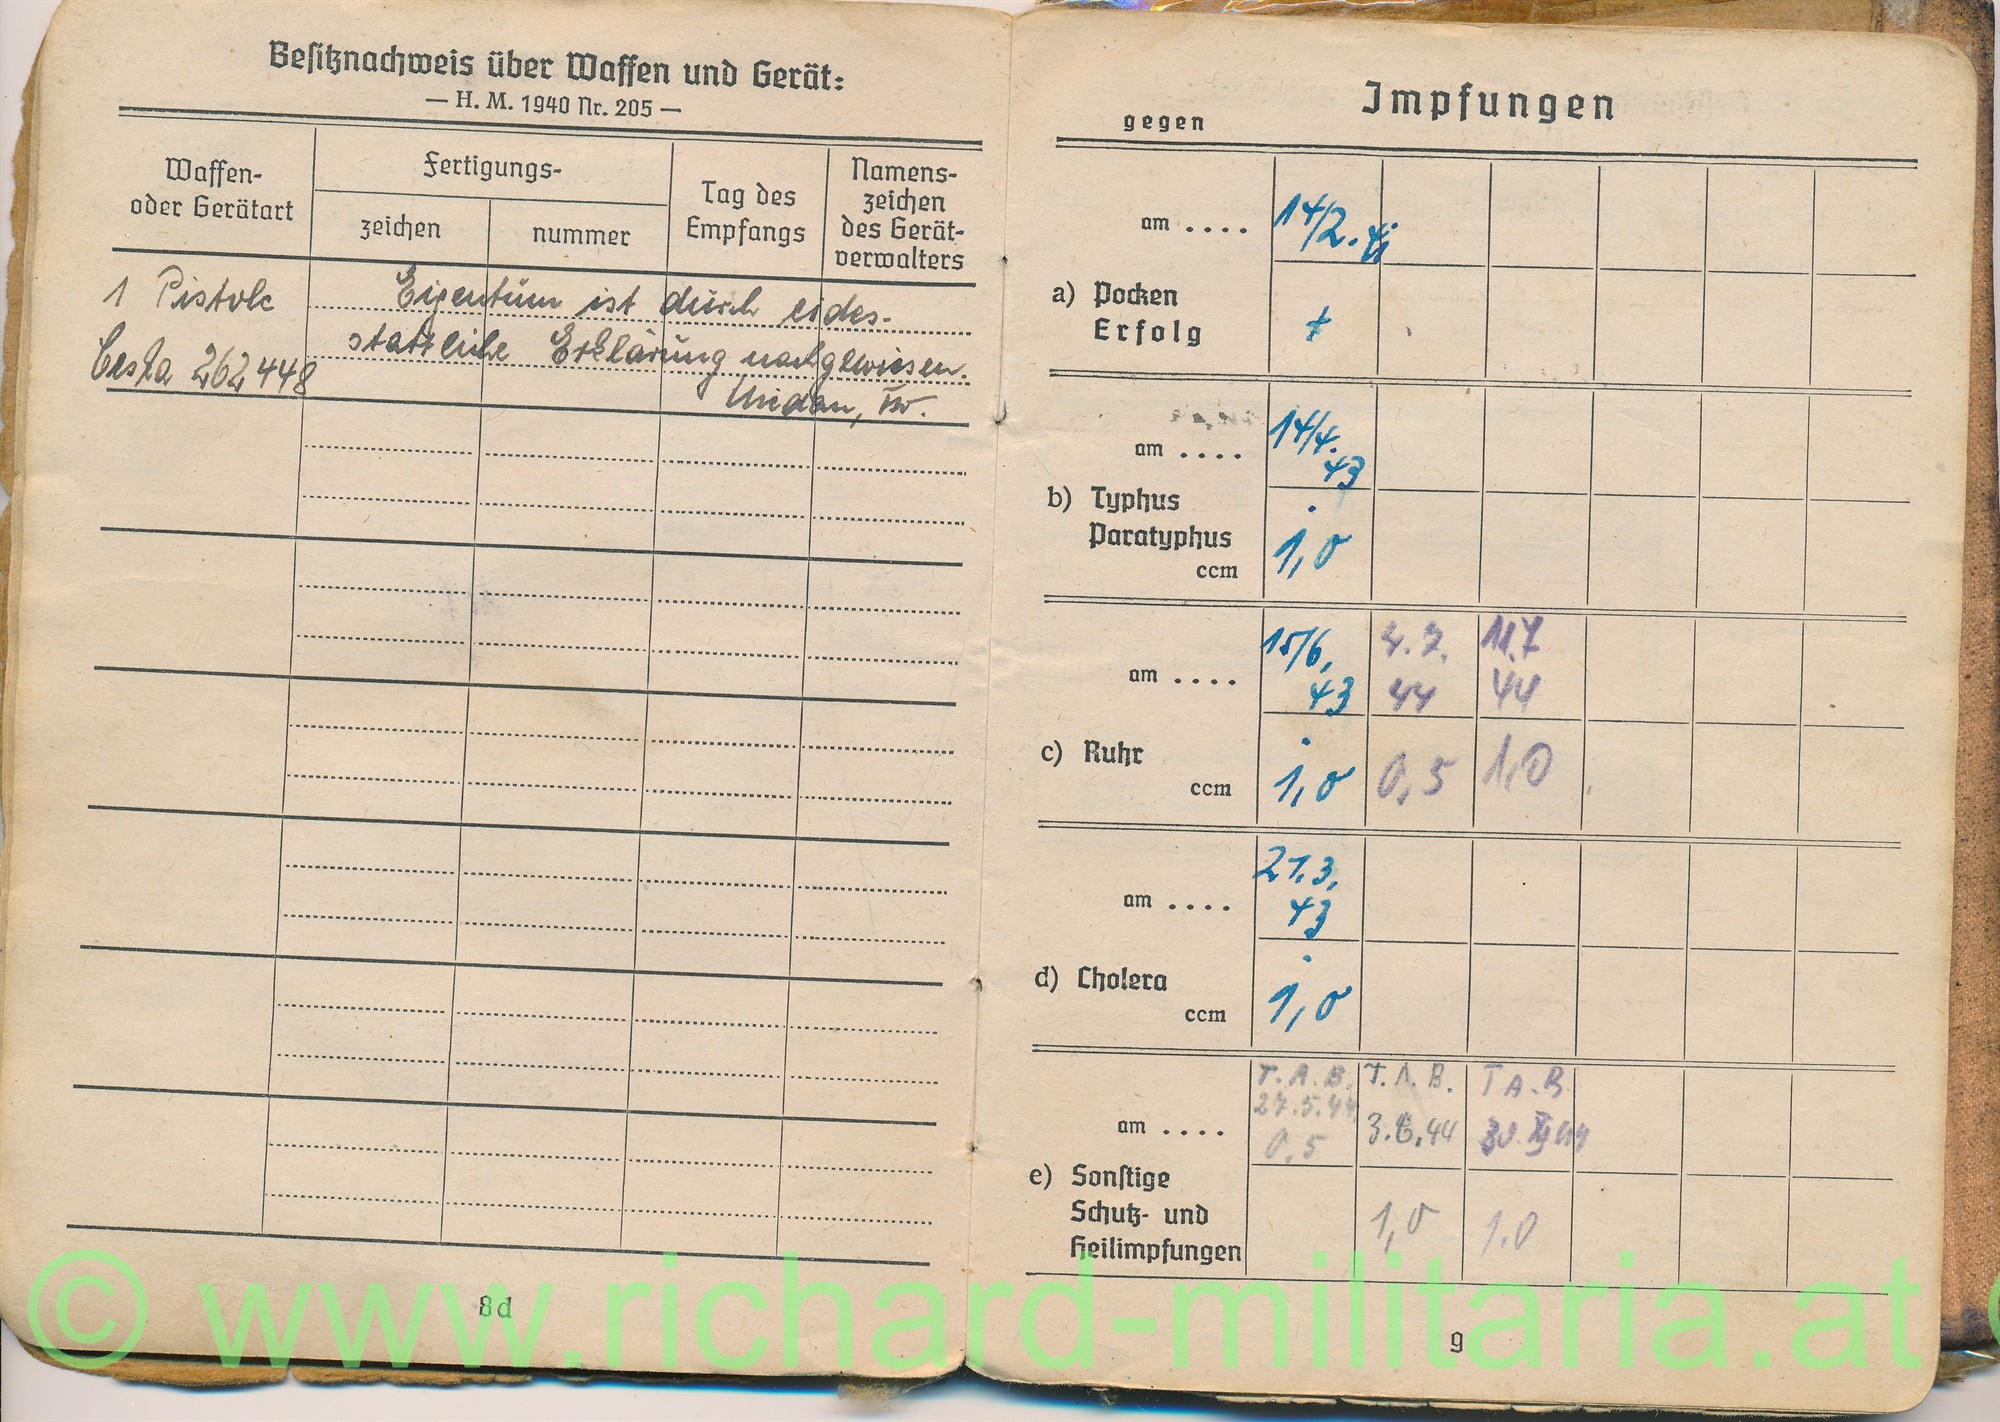 Besitznachweis über Waffen und Gerät:
— H. M. 1940 Nr. 205 —
Waffen-
oder Gerätart
Fertigungs-
zeichen
nummer
Tag des
Empfangs
Namens-
zeichen
des Gerät-
verwalters
1 Pistole
Eigentum ist durch eides-
stattliche Erklärung nachgewiesen.
Ceska 262448
8d
Impfungen
gegen
am ....
14/2.
a) Pocken
Erfolg
+
am ....
14/4.
43
b) Typhus
Paratyphus
ccm
1,0
am ....
15/6, 4.7. 11.7
43 44 44
c) Ruhr
ccm
1,0 0,5 1,0
am ....
21.3.
43
d) Cholera
ccm
1,0
T.A.B. T.A.B. T A.B.
27.5.44
am ....
0,5
3.6.44
e) Sonstige
Schutz- und
Heilimpfungen
1,0 1.0
9
© www.richard-militaria.at ©